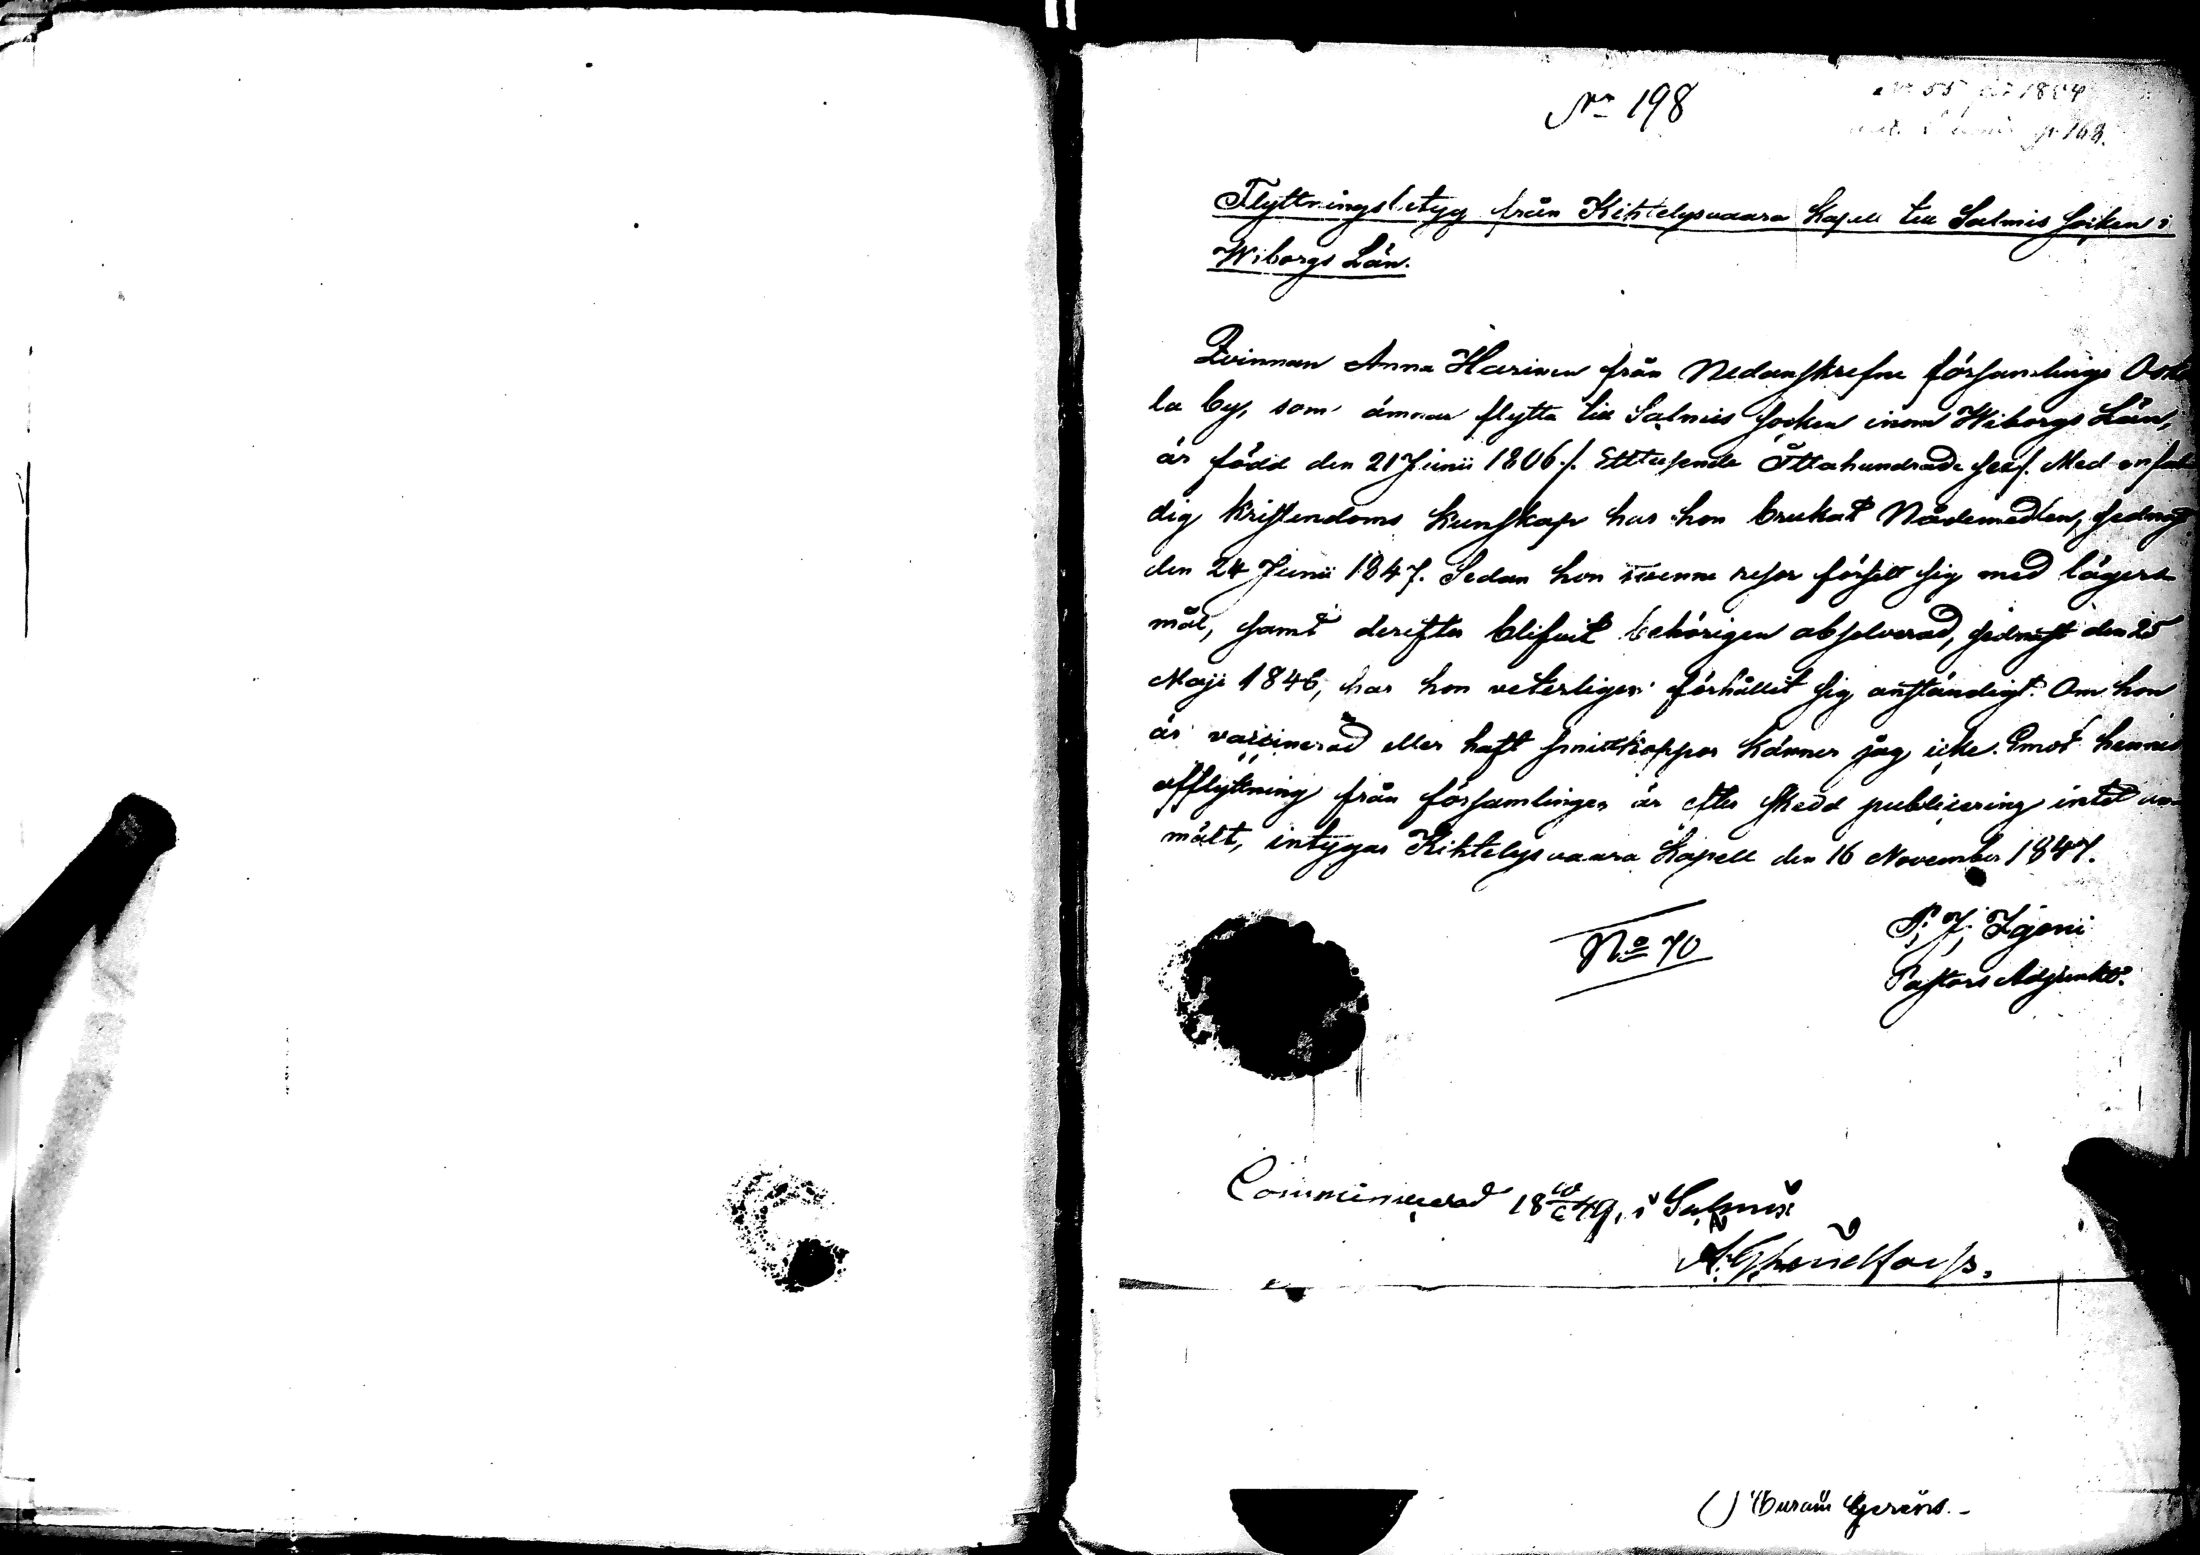 No 198
No 55 1864
p. 168.
Flyttningsbetyg från Kihtelysvaara Kapell till Salmis Socken i
Wiborgs Län.
Qvinnan Anna Harinen från Nedanskrefne församlings
la by, som ämnar flytta till Salmis Socken inom Wiborgs Län,
är född den 21 Junii 1806./. Ettusende Åttahundrade sex/. Med enfal
dig Kristendoms Kunskap har hon brukat Nådemedlen, sednast
den 24 Junii 1847. Sedan hon tvenne resor försett sig med lägers-
mål, samt derefter blifvit behörigen absolverad, sednast den 25
Maji 1846, har hon veterligen förhållit sig anständigt. Om hon
är vaccinerad eller haft smittkoppor känner jag icke. Emot hennes
afflyttning från församlingen är efter skedd publicering intet an-
mält, intygar Kihtelysvaara Kapell den 16 November 1847.
P. J. Zgoni
Pastors Adjunkt.
No 70
Communicerad 18 49, i Salmis